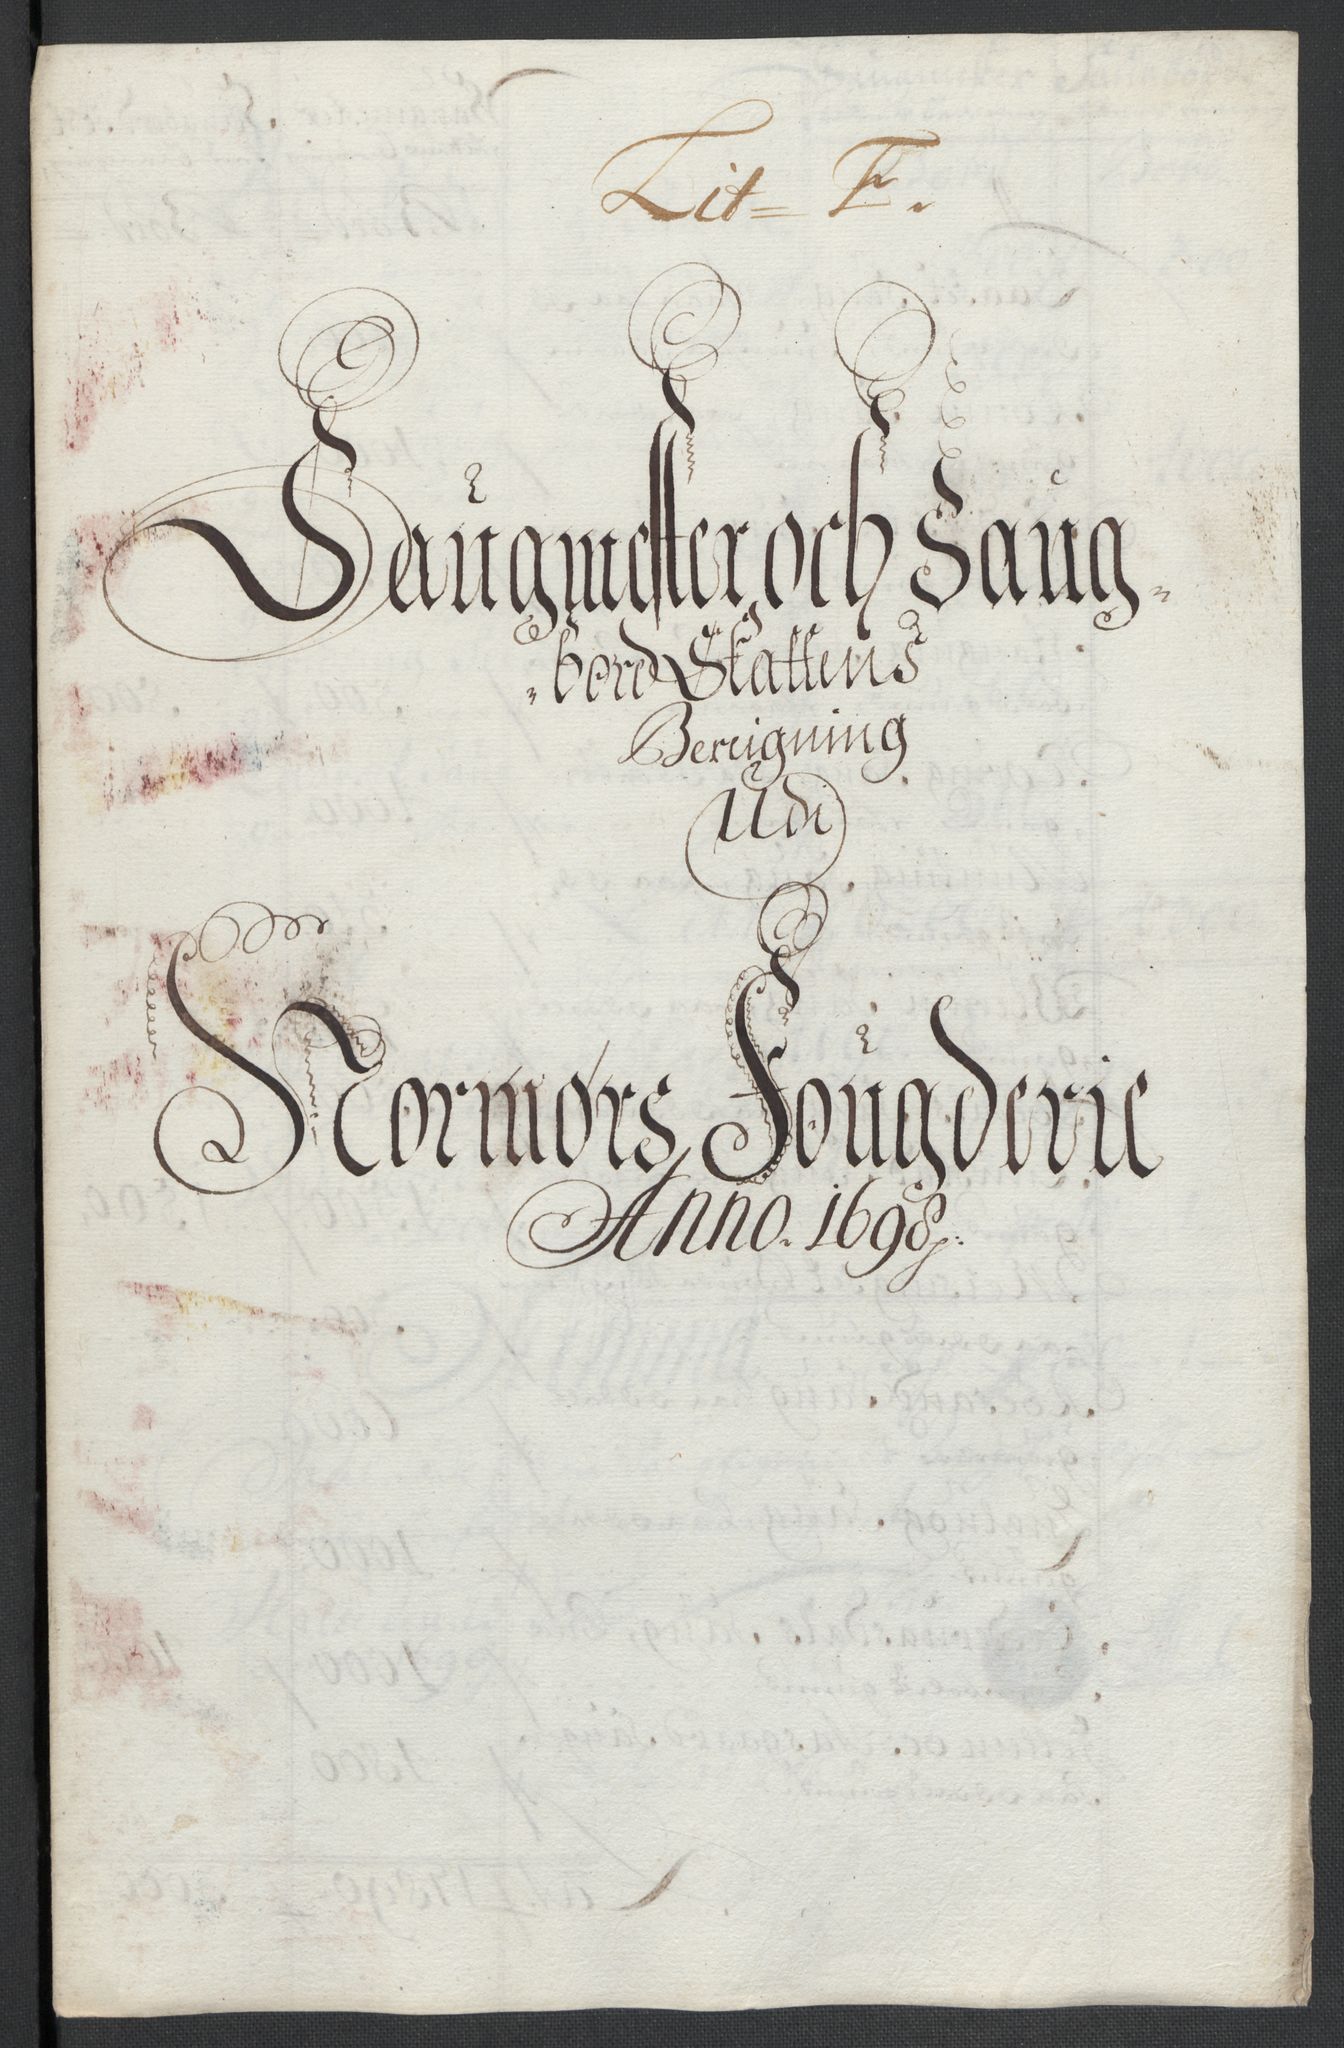 Lit= F.
Saugmester och Saug-
-bord Skattens
Bereigning
Udi
Normørs Fougderie
Anno. 1698